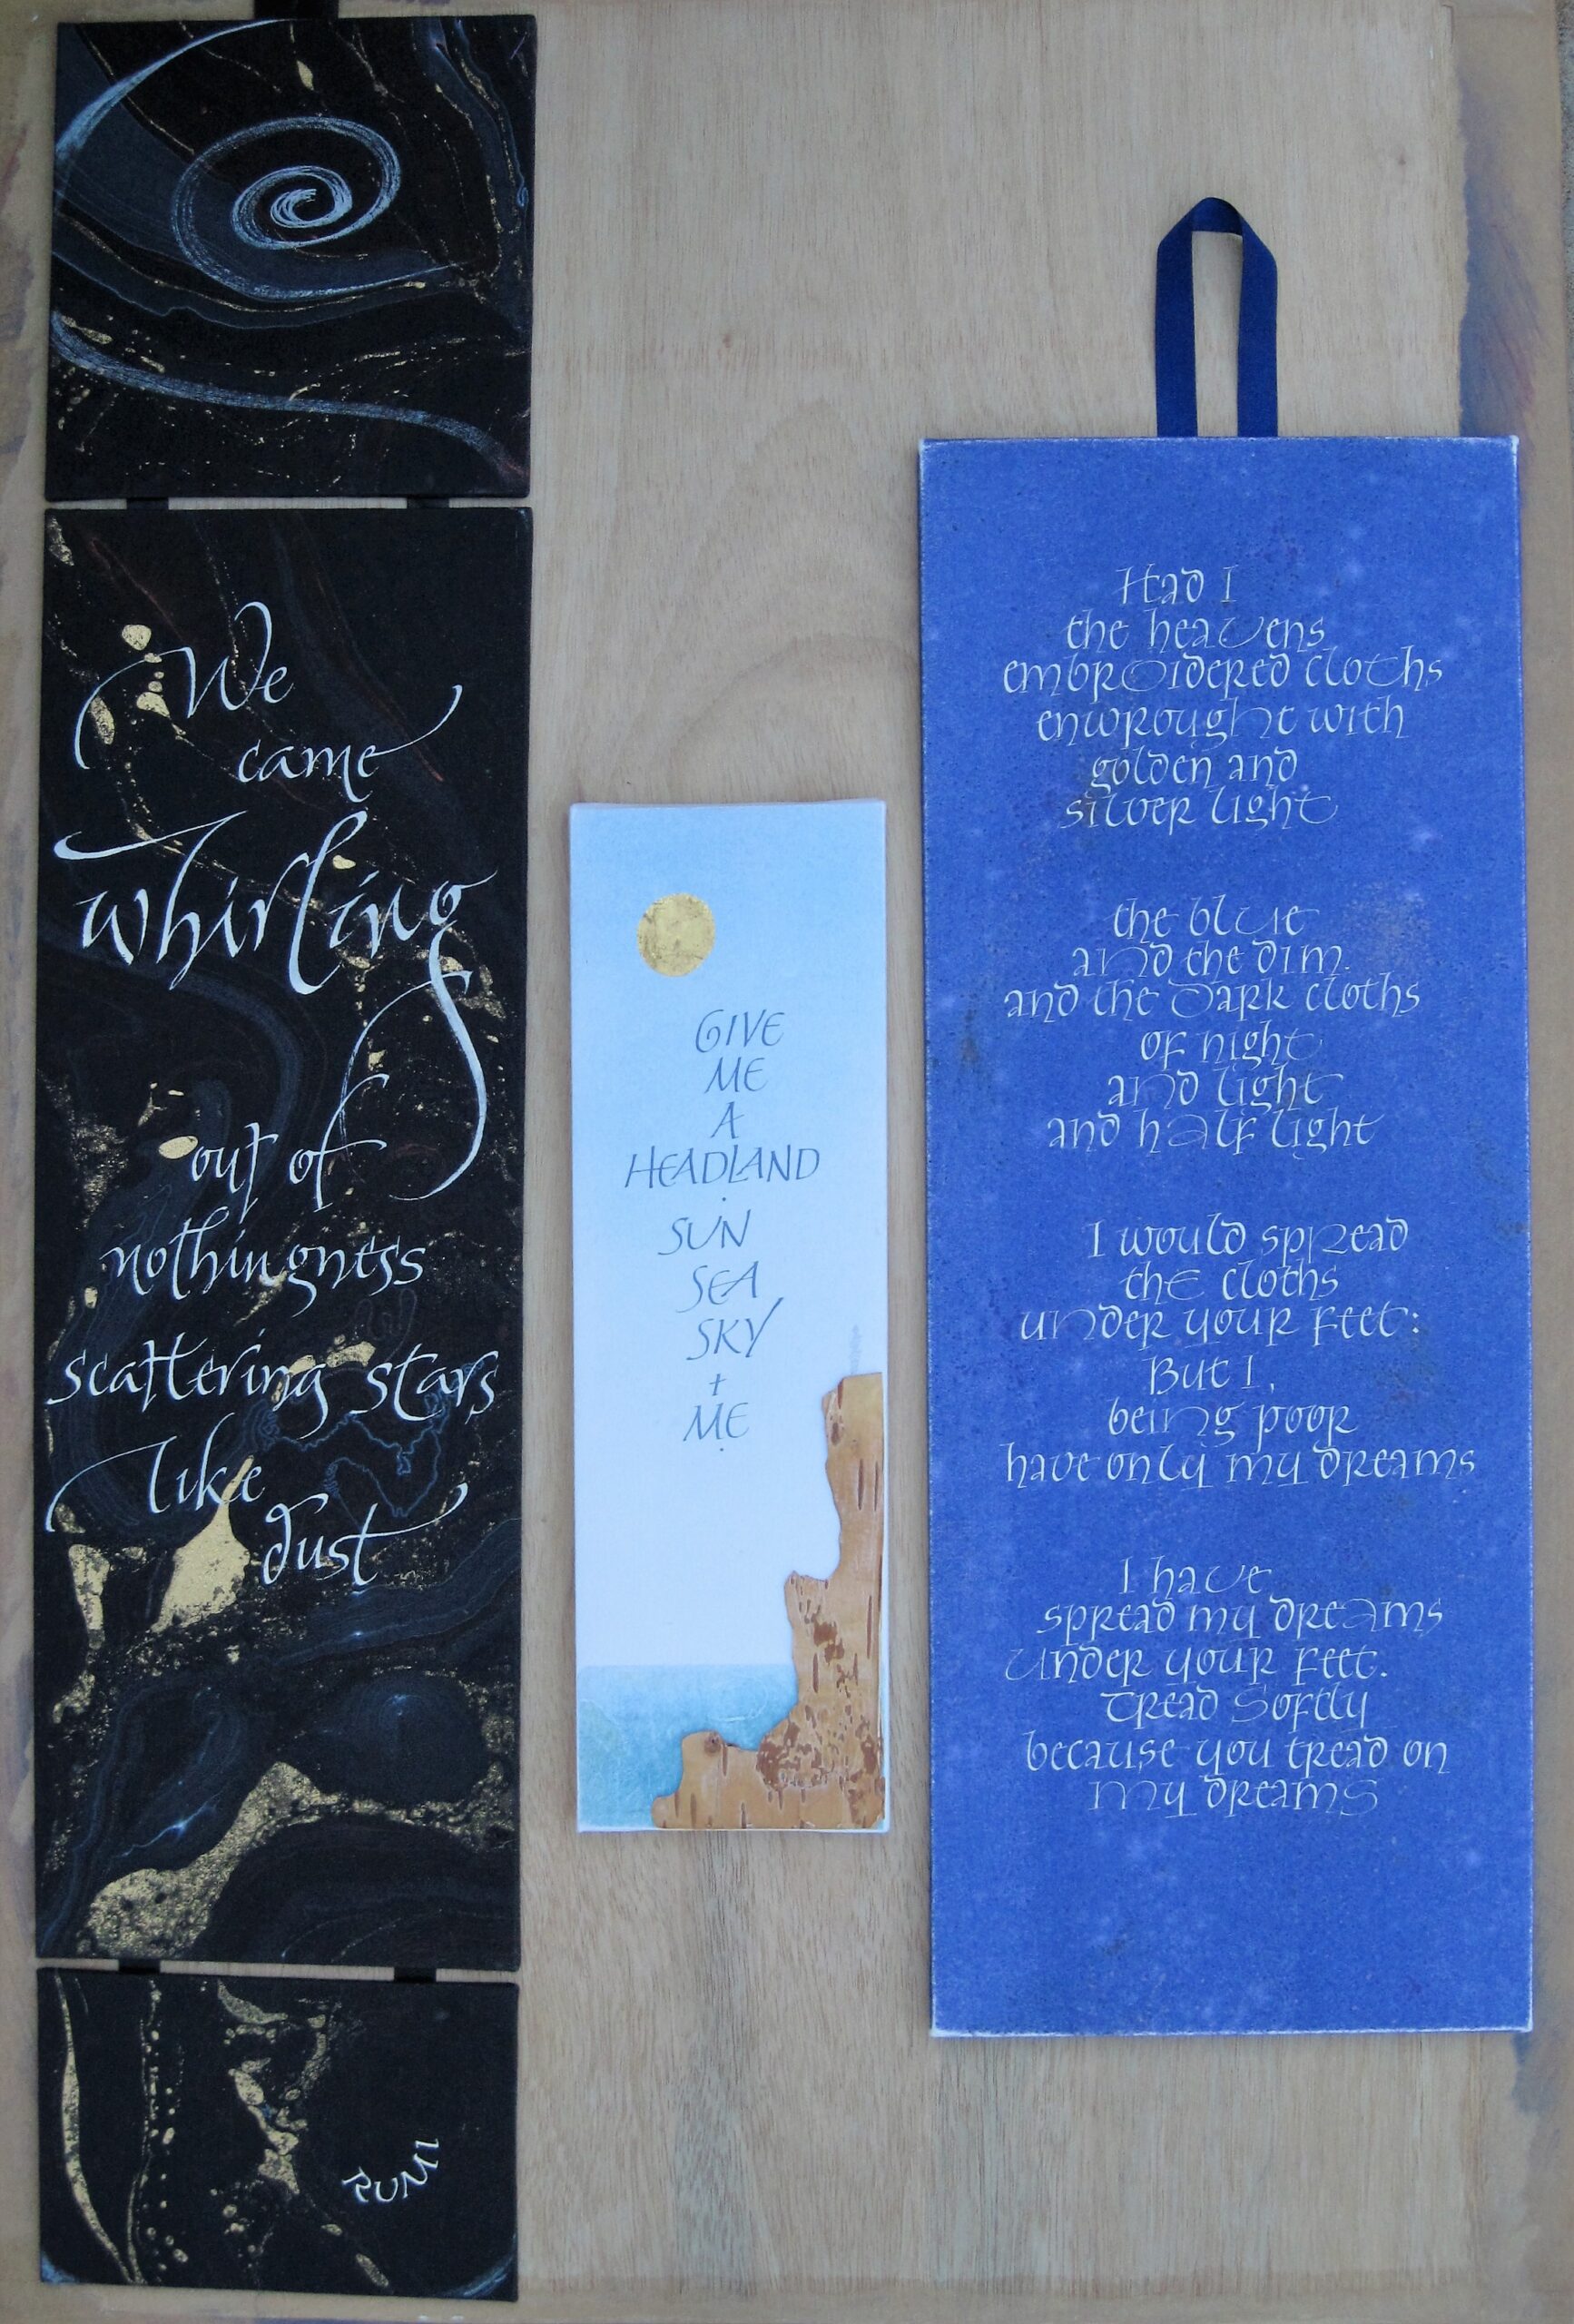 We
came
whirling
out of
nothingness
scattering stars
like
dust
RUMI
GIVE
ME
A
HEADLAND
·
SUN
SEA
SKY
+
ME
Had I
the heavens
embroidered cloths
enwrought with
golden and
silver light
the blue
and the dim
and the dark cloths
of night
and light
and half light
I would spread
the cloths
under your feet:
But I,
being poor
have only my dreams
I have
spread my dreams
under your feet.
Tread Softly
because you tread on
my dreams